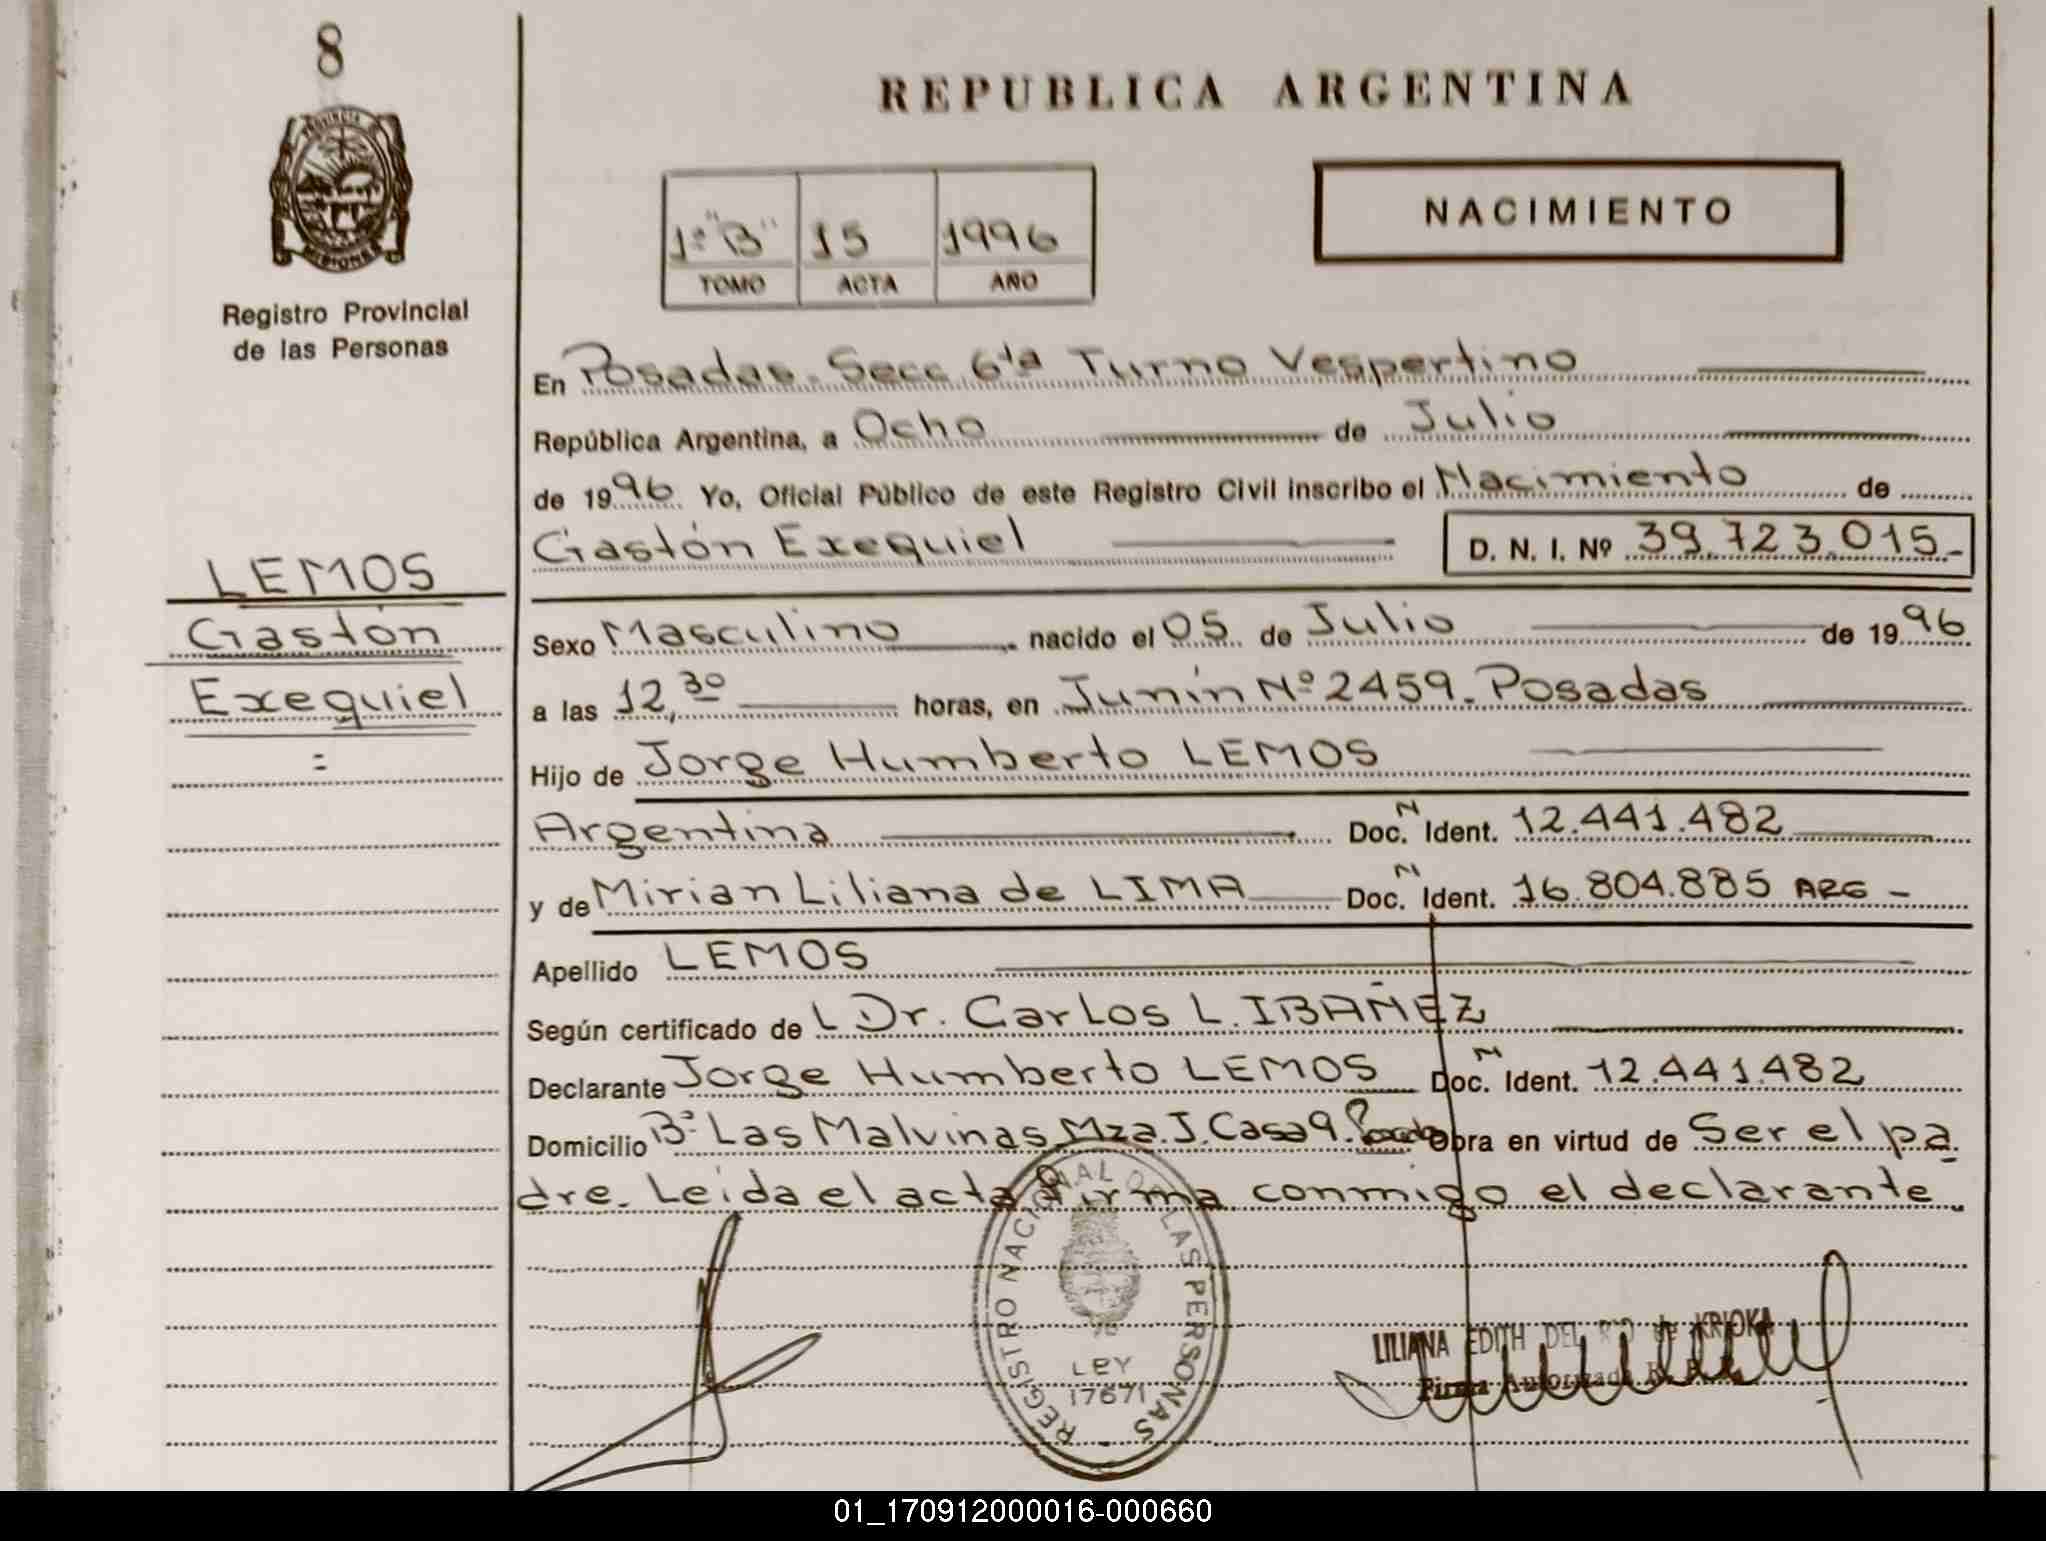 8
REPUBLICA ARGENTINA
PROVINCIA D
MISIONES
Registro Provincial
de las Personas
1º "B" 15 1996
TOMO ACTA AÑO
NACIMIENTO
En Posadas. Secc 6ta Turno Vespertino
República Argentina, a Ocho de Julio
de 1996 Yo, Oficial Público de este Registro Civil inscribo el Nacimiento de
Gastón Exequiel D. N. I. Nº 39.723.015.-
LEMOS
Gastón
Exequiel
=
Sexo Masculino nacido el 05 de Julio de 1996
a las 12,30 horas, en Junín Nº 2459. Posadas
Hijo de Jorge Humberto LEMOS
Argentina Doc. N Ident. 12.441.482
y de Mirian Liliana de LIMA Doc. N Ident. 16.804.885 ARG -
Apellido LEMOS
Según certificado de L Dr. Carlos L. IBAÑEZ
Declarante Jorge Humberto LEMOS Doc. N Ident. 12.441.482
Domicilio Bº Las Malvinas Mza. J. Casa 9. Obra en virtud de Ser el pa
dre. Leída el acta firma conmigo el declarante.
REGISTRO NACIONAL DE LAS PERSONAS
LEY
17671
LILIANA EDITH DEL RIO de KRIOKA
Firma Autorizada
01_170912000016-000660